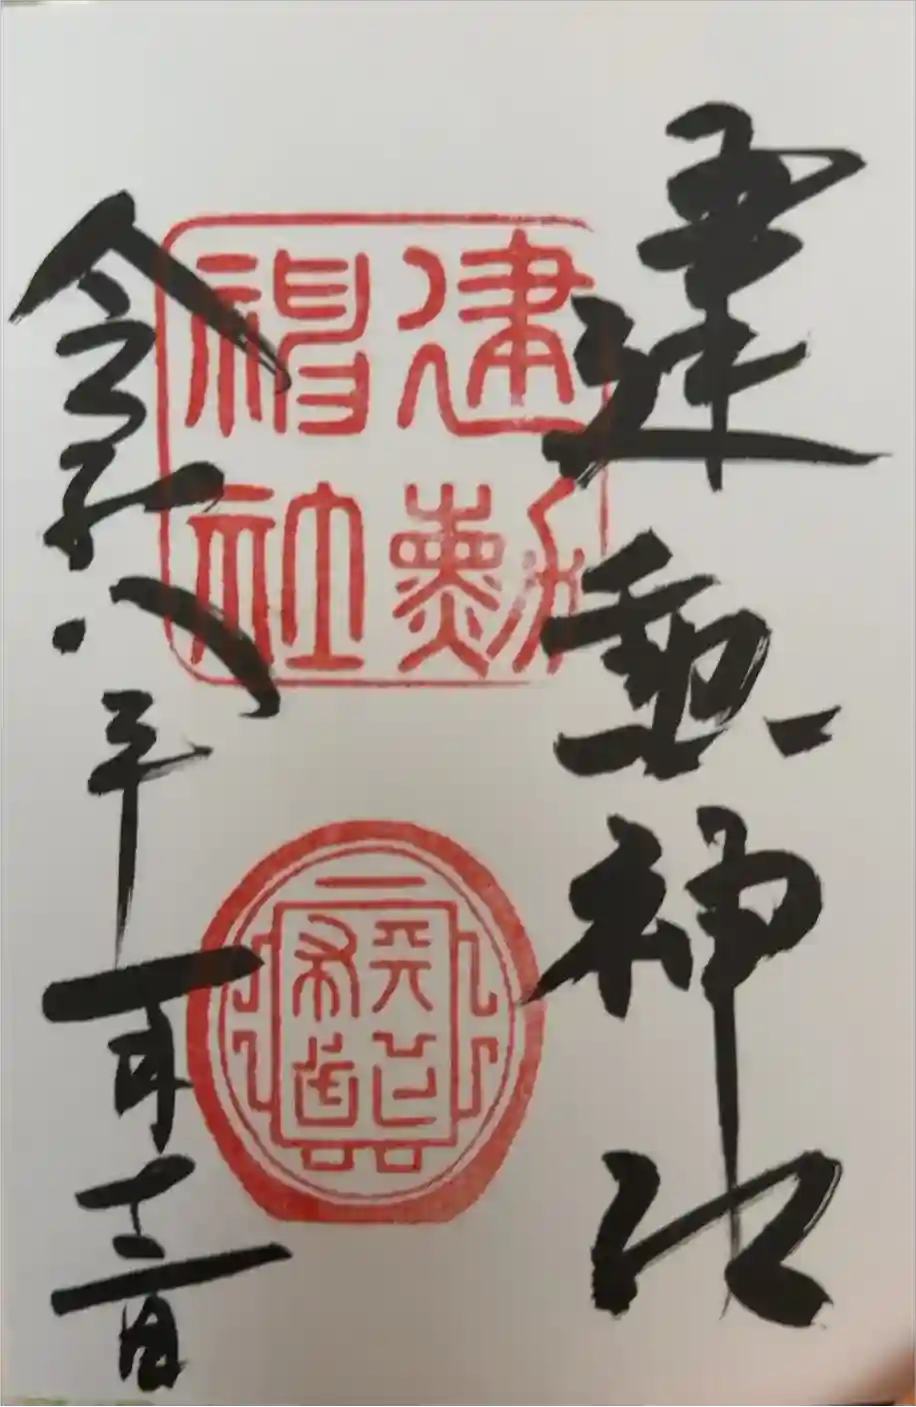 建勲神社
建勲神社
令和八年一月十二日